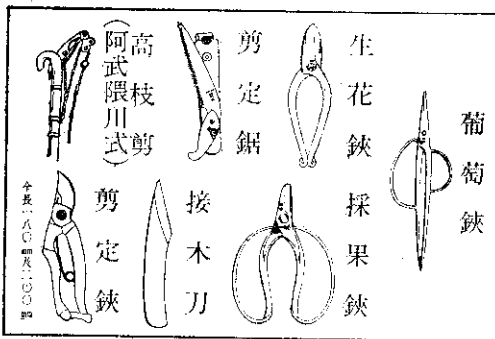 葡萄鋏
生花鋏
採果鋏
剪定鋸
接木刀
高枝剪
(阿武隈川式)
剪定鋏
全長一八〇mm及二〇〇mm